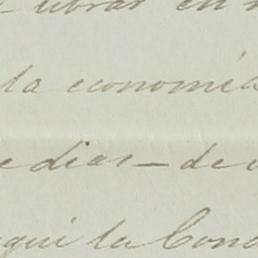 librar en
la economía
dias — de
aqui la Con